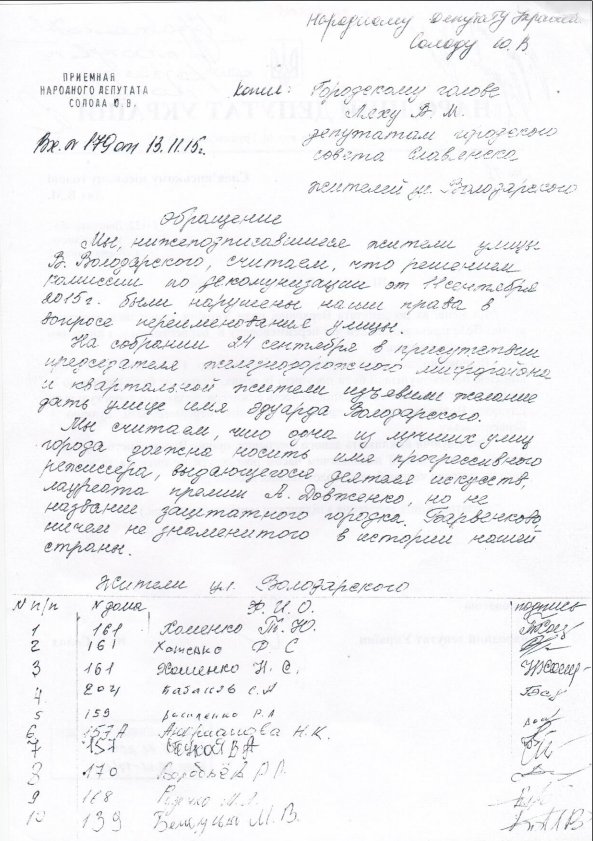 Народному депутату Украины
Солоду Ю.В
ПРИЕМНАЯ
НАРОДНОГО ДЕПУТАТА
СОЛОДА Ю.В.
Вх. № 179 от 13.11.15г.
Копия: Городскому голове
Ляху В.М.
депутатам городского
совета Славянска
жителей ул. Володарского
Обращение
Мы, нижеподписавшиеся жители улицы
В. Володарского, считаем, что решением
комиссии по декомунизации от 11 сентября
2015г. были нарушены наши права в
вопросе переименование улицы.
На собрании 24 сентября в присутствии
председателя железнодорожного
и квартальной жители изъявили желание
дать улице имя Эдуарда Володарского.
Мы считаем, что одна из лучших улиц
города должна носить имя прогрессивного
режиссера, выдающегося деятеля искусств,
лауреата премии А. Довженко, но не
название заштатного городка Барвенково,
ничем не знаменитого в истории нашей
страны.
Жители ул. Володарского
№ п/п № дома Ф.И.О. подпись
1 161 Хоменко Т.Ю.
2 161 Ф С
3 161 Хоменко Н.С.
4 204
5 159 Р.А
6 157А Андрианова Н.К.
7 157
8 170 Воробьёв
9 168
10 139 М.В.